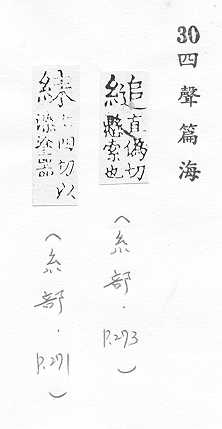 30
四聲篇海
縋直偽切
懸索也
(糸部·P.273)
四切以
塗器
(糸部·P.271)